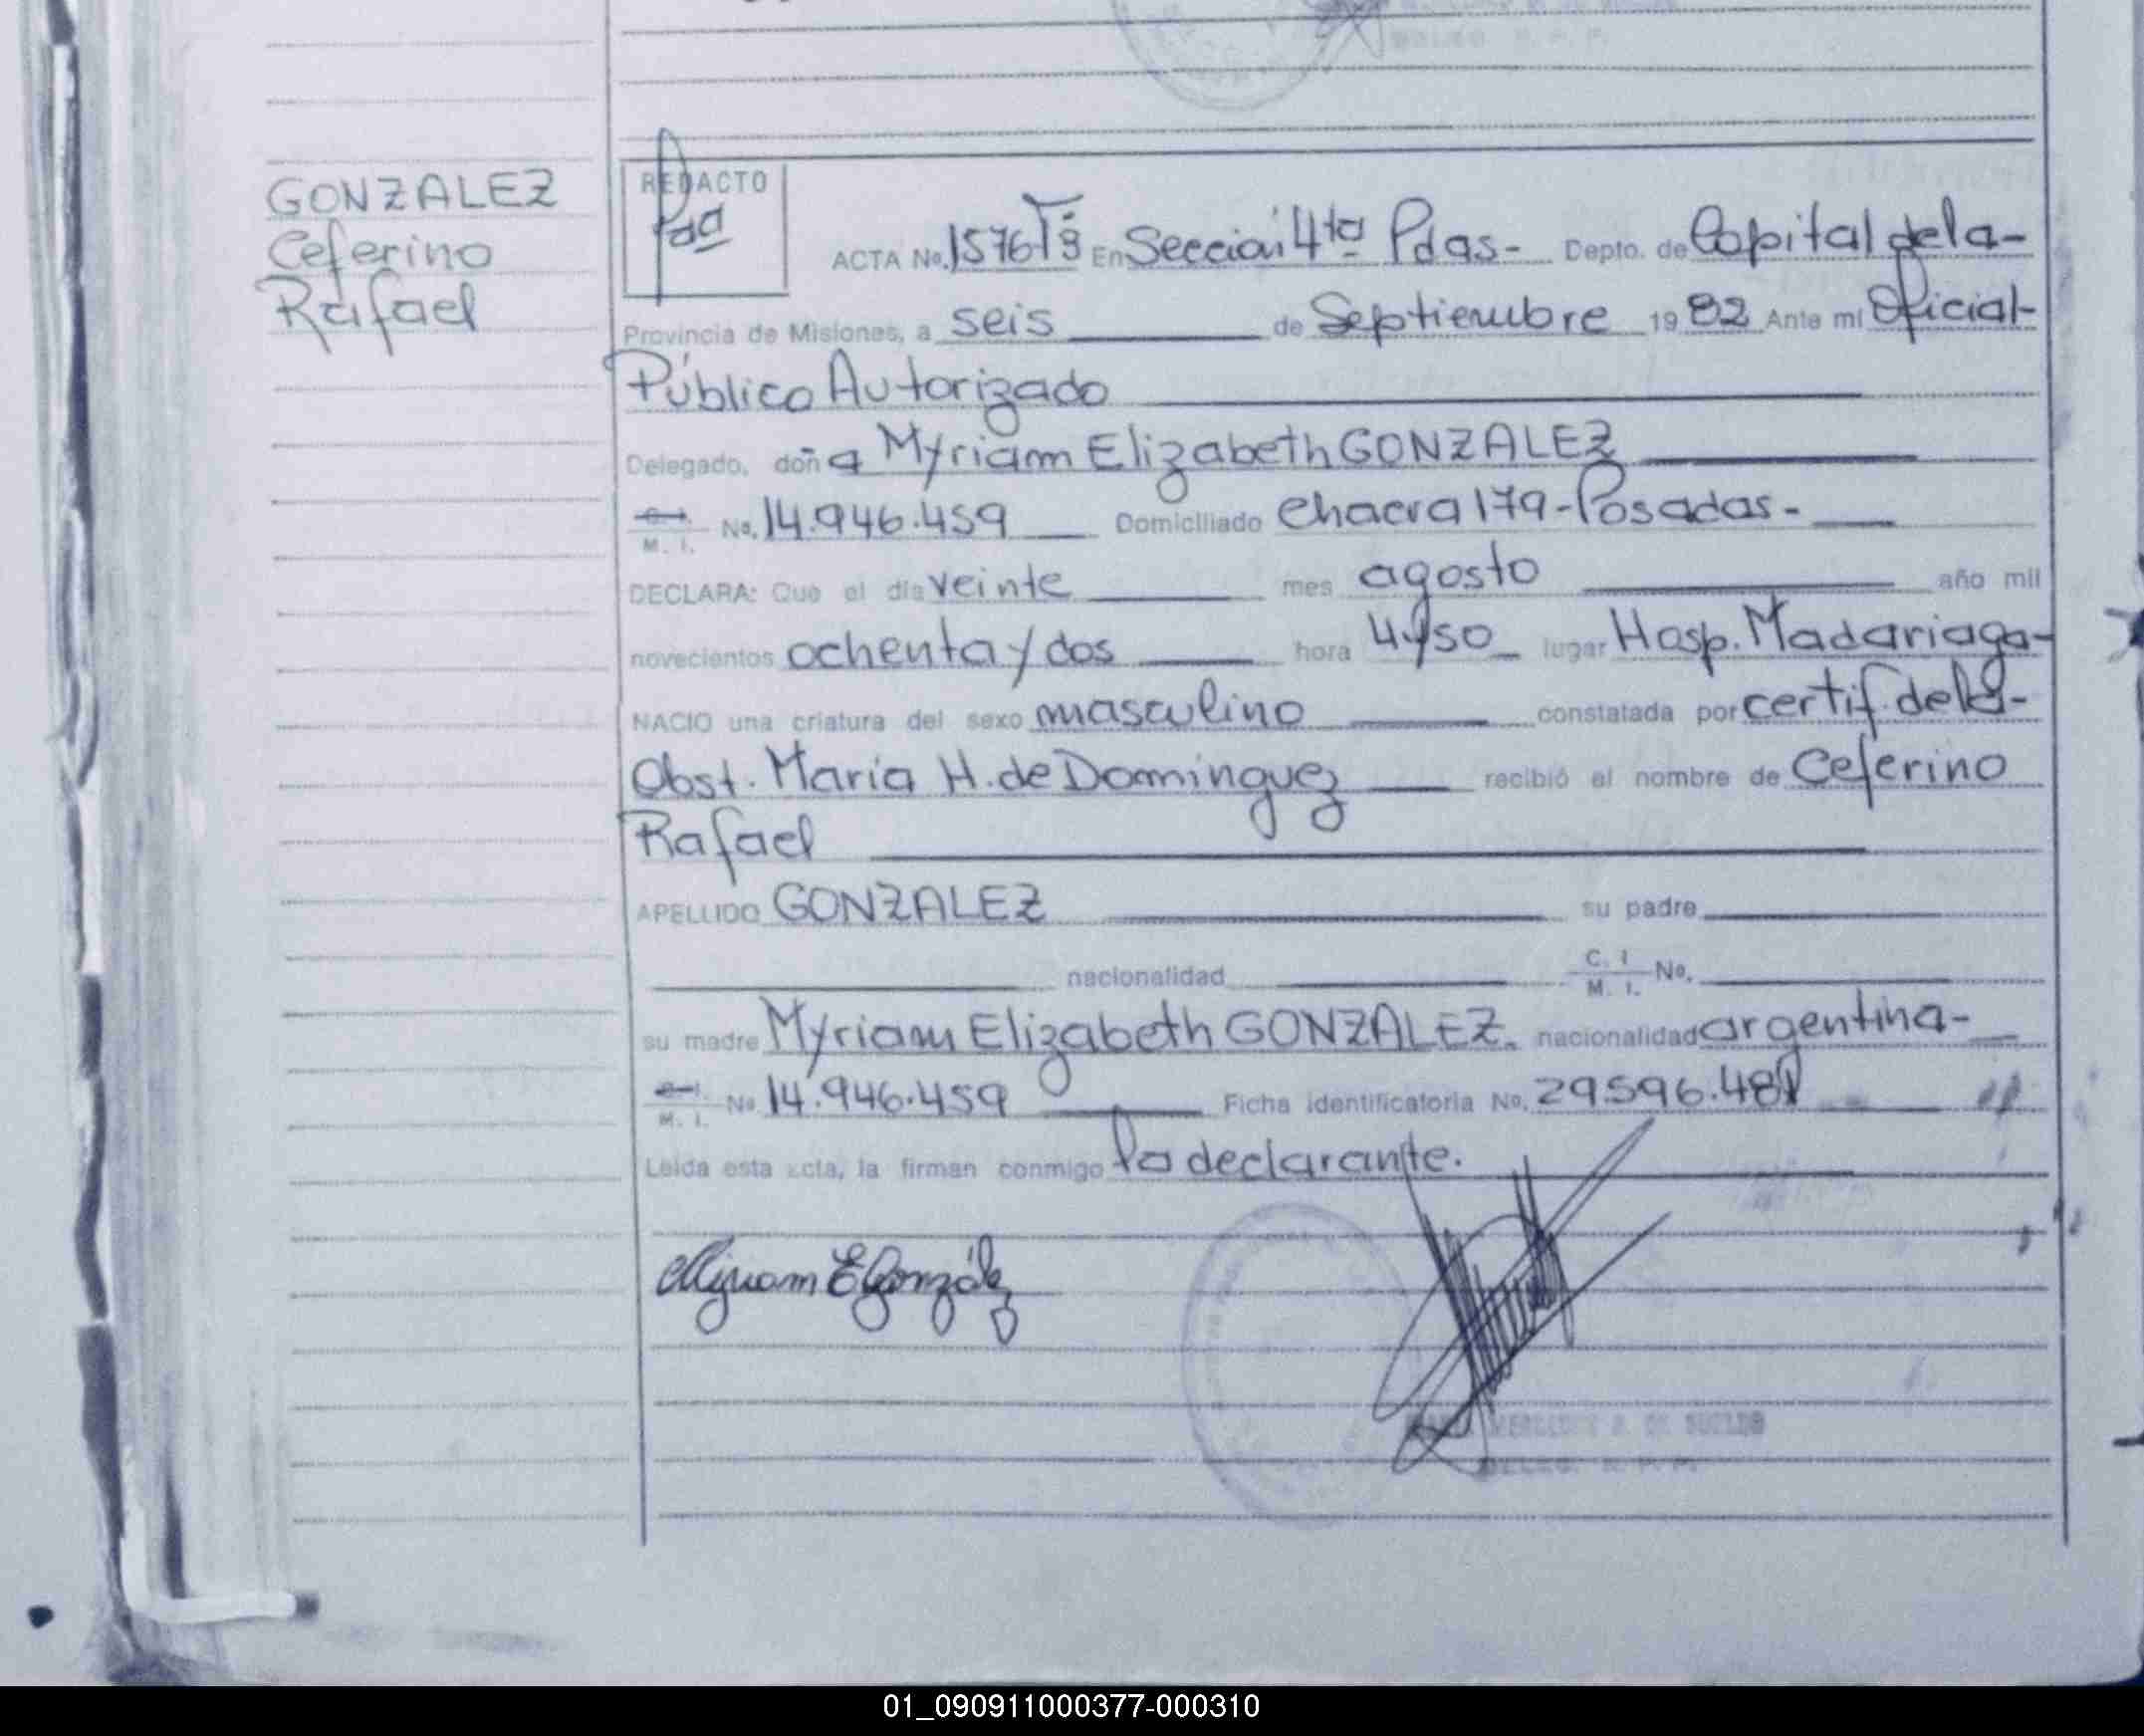 GONZALEZ
Ceferino
Rafael
REDACTO
ACTA No. 1576 Tº 9 En Sección 4ta Pdas- Depto. de Capital de la-
Provincia de Misiones, a seis de Septiembre 1982 Ante mi Oficial-
Público Autorizado
Delegado, doña Myriam Elizabeth GONZALEZ
C. I. M. I. No. 14.946.459 Domiciliado Chacra 179-Posadas-
DECLARA: Que el dia veinte mes agosto año mil
novecientos ochenta y dos hora 4y50 lugar Hosp. Madariaga-
NACIO una criatura del sexo masculino constatada por certif. de la-
Obst. María H. de Dominguez recibió el nombre de Ceferino
Rafael
APELLIDO GONZALEZ su padre
nacionalidad C. I M. I. No.
su madre Myriam Elizabeth GONZALEZ. nacionalidad argentina-
C. I. M. I. No 14.946.459 Ficha identificatoria No. 29.596.481
Leida esta acta, la firman conmigo la declarante.
Myriam E González
DELEG. R. P. P.
01_090911000377-000310